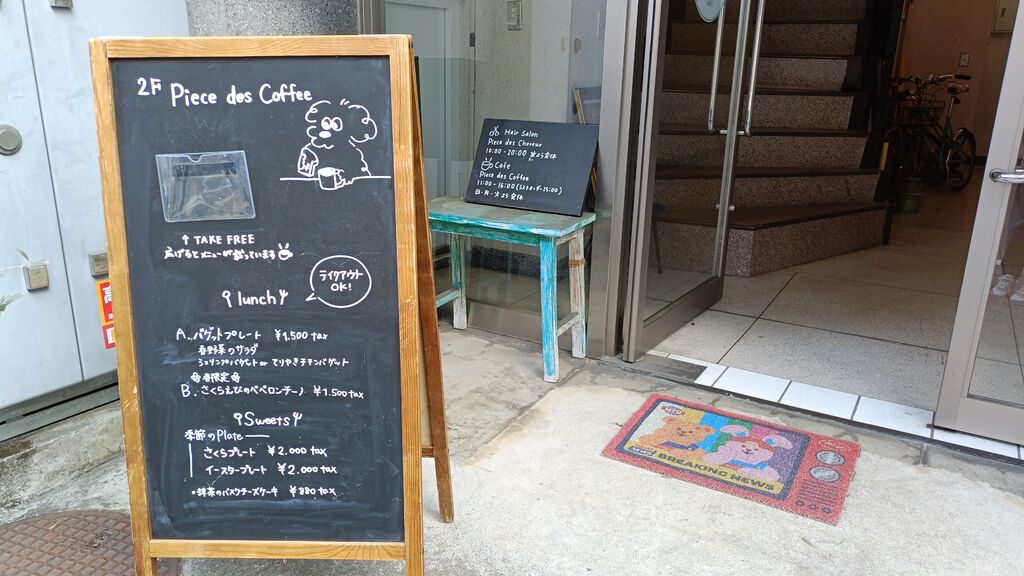 2F Piece des Coffee
↑ TAKE FREE
広げるとメニューが載っています
テイクアウト
OK!
lunch
A.. バゲットプレート ¥1.500 tax
春野菜のサラダ
or てりやきチキンバゲット
春限定
B. さくらえびのペペロンチーノ ¥1.500 tax
Sweets
季節のPlate
さくらプレート ¥2.000 tax
イースタープレート ¥2.000 tax
・抹茶のバスクチーズケーキ ¥880 tax
Hair Salon
Piece des Cheveux
10:00-20:00 火よう定休
Cafe
Piece des Coffee
11:00-16:00(ラストオーダー15:00)
日・月・火よう定休
BREAKING NEWS